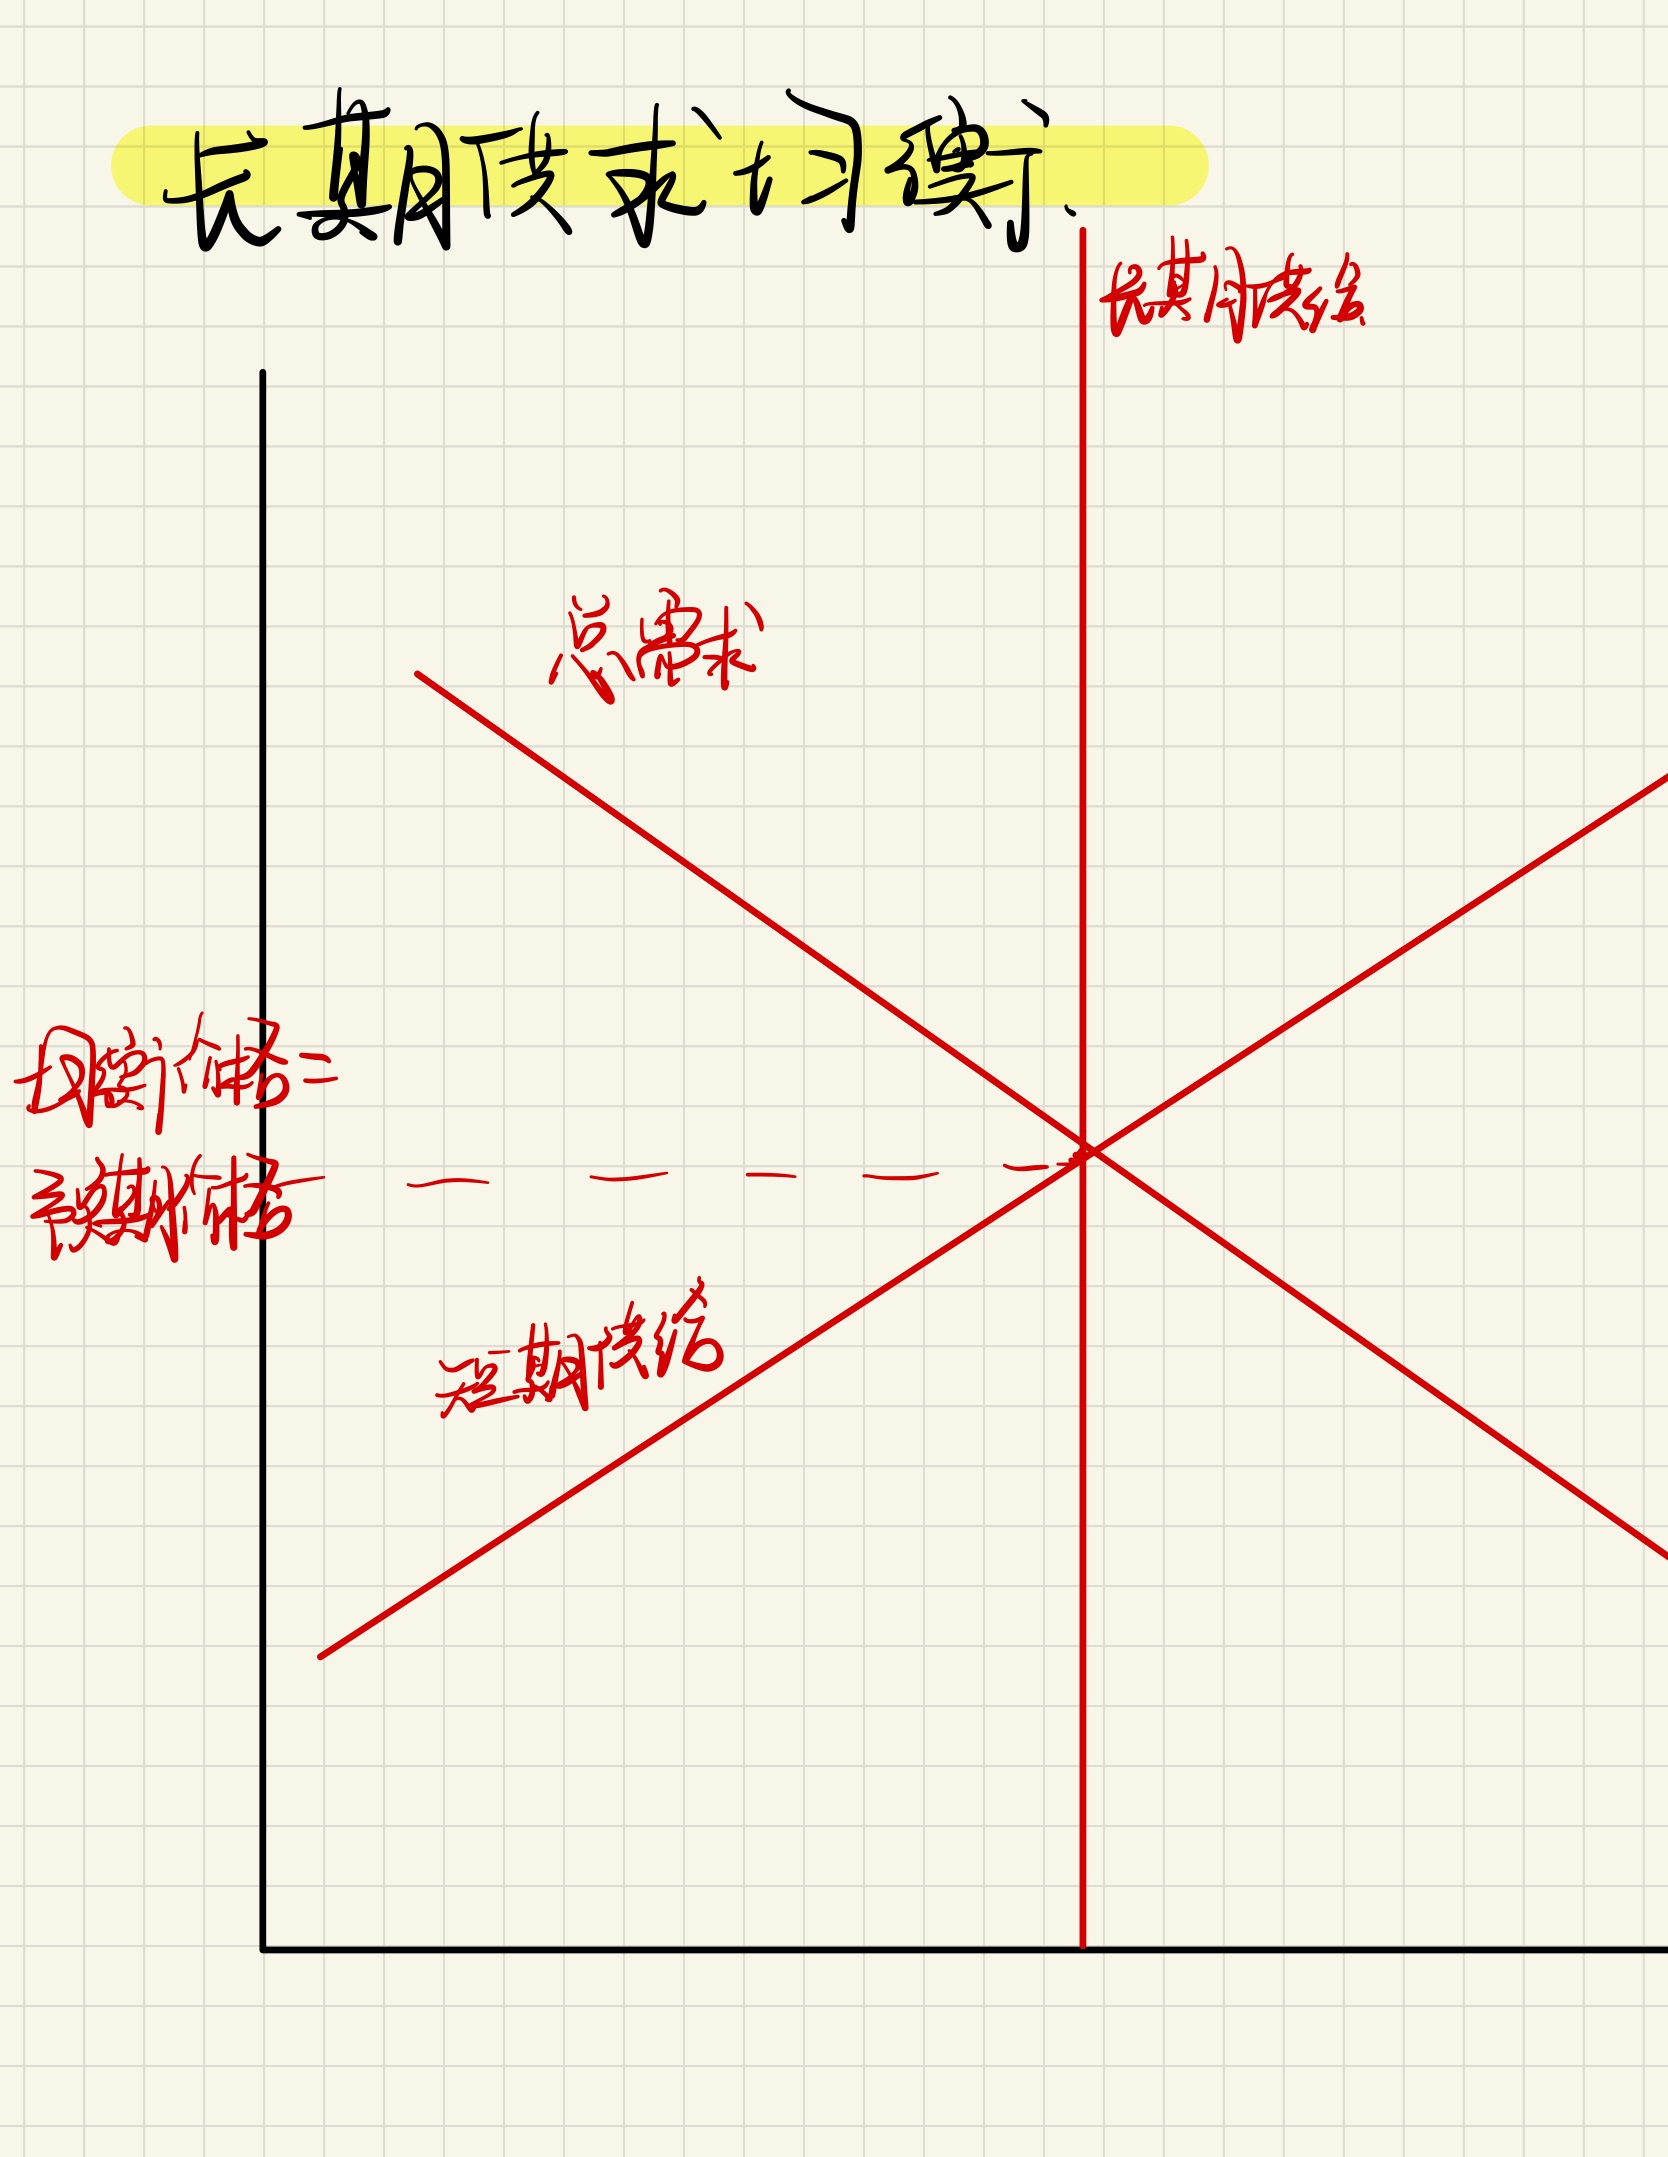 长期供求均衡
长期供给
总需求
均衡价格=
预期价格
短期供给